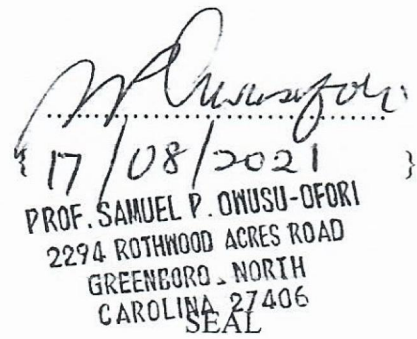 { 17/08/2021 }
PROF. SAMUEL P. OWUSU-OFORI
2294 ROTHWOOD ACRES ROAD
GREENBORO - NORTH
CAROLINA 27406
SEAL